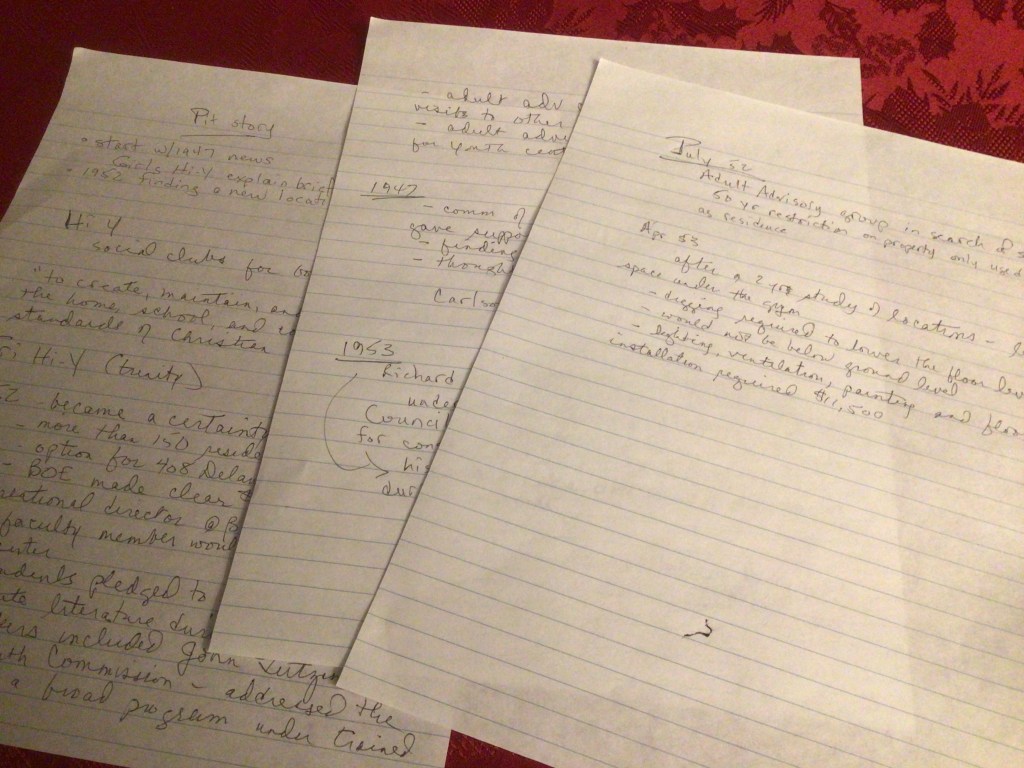 Pit story
• start w/1947 news
Girls Hi-Y explain brief
• 1952 finding a new locati
Hi Y
social clubs for
"to create, maintain, an
the home, school, and
standards of Christian
Tri Hi-Y (trinity)
52 became a certainty
- more than 150 resid
- option for 408 Delaw
- BOE made clear
director @ B
faculty member woul
center
udents pledged to
literature dur
included John
th Commission - addressed the
a broad program under trained
- adult adv
visits to other
- adult advi
for youth cen
1947
- comm of
gave suppo
- finding
- though
Carlso
1953
Richard
unde
Counci
for con
his
dur
July 52
Adult Advisory group in search of s
50 yr restriction on property only used
as residence
Apr 53
after a 2 yr study of locations -
space under the gym
- digging required to lower the floor lev
- would not be below ground level
- lighting, ventilation, painting and floor
installation required $11,500